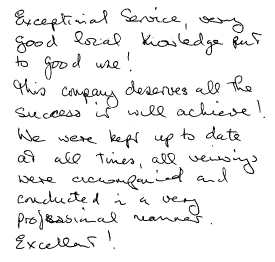 Exceptional Service, very
good local knowledge put
to good use!
This company deserves all the
success it will achieve!
We were kept up to date
at all times, all viewings
were accompanied and
conducted in a very
professional manner.
Excellent!